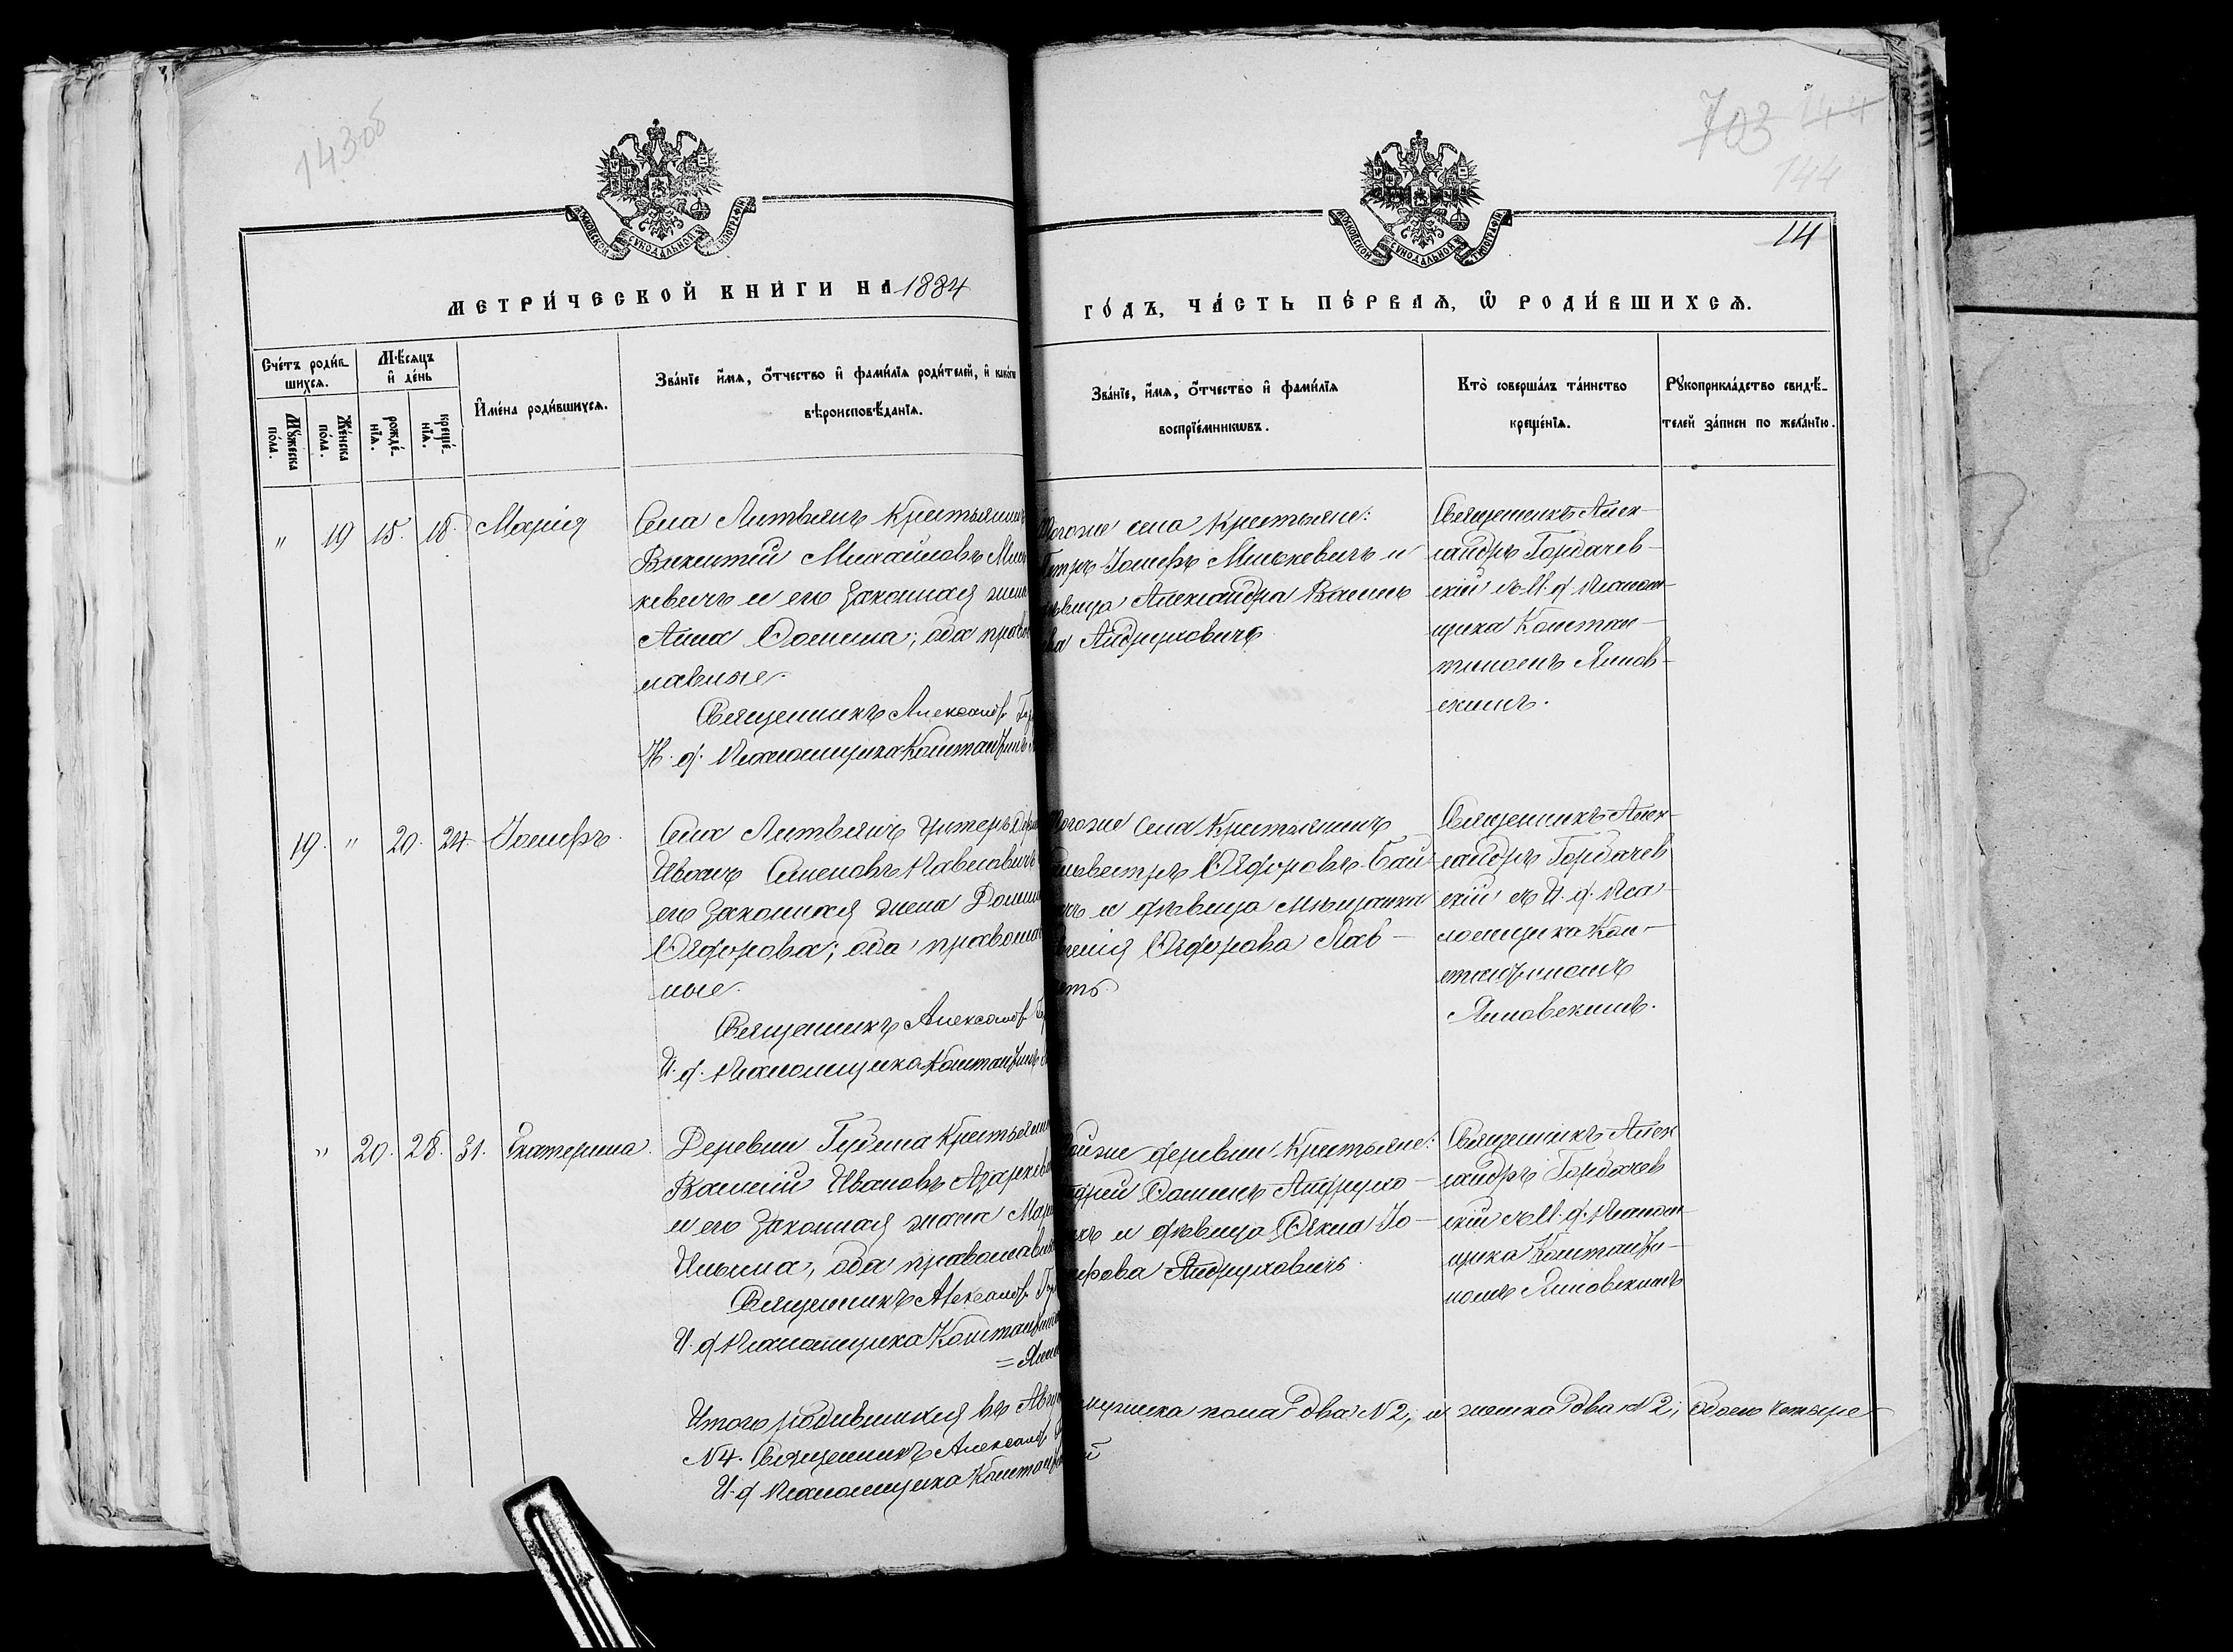 143об
703 144
144
14
МОСКОВСКОЙ СѴНОДАЛЬНОЙ ТИПОГРАФІИ
МОСКОВСКОЙ СѴНОДАЛЬНОЙ ТИПОГРАФІИ
МЕТРИ́ЧЕСКОЙ КНИ́ГИ НА 1884
ГО́ДЪ, ЧА́СТЬ ПЕ́РВАѦ, Ѡ РОДИ́ВШИХСѦ.
Сче́тъ роди́в-
шихсѧ.
Мꙋ́жеска
по́ла.
Же́нска
по́ла.
Мѣ́сѧцъ
и де́нь
рожде́-
нїѧ.
креще́-
нїѧ.
Имена́ роди́вшихсѧ.
Зва́нїе имѧ, о́тчество и фами́лїѧ роди́телей, и како́гѡ
вѣроисповѣ́данїѧ.
Зва́нїе, имѧ, о́тчество и фами́лїѧ
воспрїе́мникѡвъ.
Кто̀ соверша́лъ та́инство
креще́нїѧ.
Рꙋкоприкла́дство свидѣ́-
телей за́писи по жела́нїю.
" 19 15. 18. Марія
Села Литвянъ крестьянинъ
Викентій Михайловъ Миць
кевичъ и его законная жена
Анна Осипова; оба правос
лавные.
Священникъ Александр Гор
И. д. Псаломщика Константинъ
Тогоже села крестьяне:
Петръ Іосифъ Мицкевичъ и
дѣвица Александра Василь
ева Андруховичъ
Священникъ Алек-
сандръ Горбачев-
скій съ И. д. Псалом-
щика Констан-
тиномъ Янов-
скимъ.
19. " 20. 24. Іосифъ.
Села Литвянъ
Иванъ Семеновъ Павловичъ
его законная жена Домни
Ѳедорова; оба православ
ные.
Священникъ Александр
И. д. Псаломщика Константинъ
Тогоже села крестьянинъ
Сильвестръ Ѳедоровъ
и дѣвица мѣщанка
Ѳедорова Лав-
Священникъ Алек-
сандръ Горбачев
скій съ И. д. Пса-
ломщика Кон-
стантиномъ
Яновскимъ.
" 20. 28. 31. Екатерина.
Деревни крестьянинъ
Василій Ивановъ Азаркевичъ
и его законная жена Мар
Ильина, оба православные
Священникъ Александр Гор
И. д. Псаломщика Константинъ
= Янов
Тойже деревни крестьяне:
Андрей Осиповъ Андрухо-
вичъ и дѣвица Ѳекла Іо-
сифова Андруховичъ.
Священникъ Алек
сандръ Горбачев
скій съ И. д. Псалом-
щика Константи-
номъ Яновскимъ
Итого родившихся въ Авгу мужска пола два №2, и женска два №2; обоего четыре
№4. Священникъ Александр
И. д. Псаломщика Константин